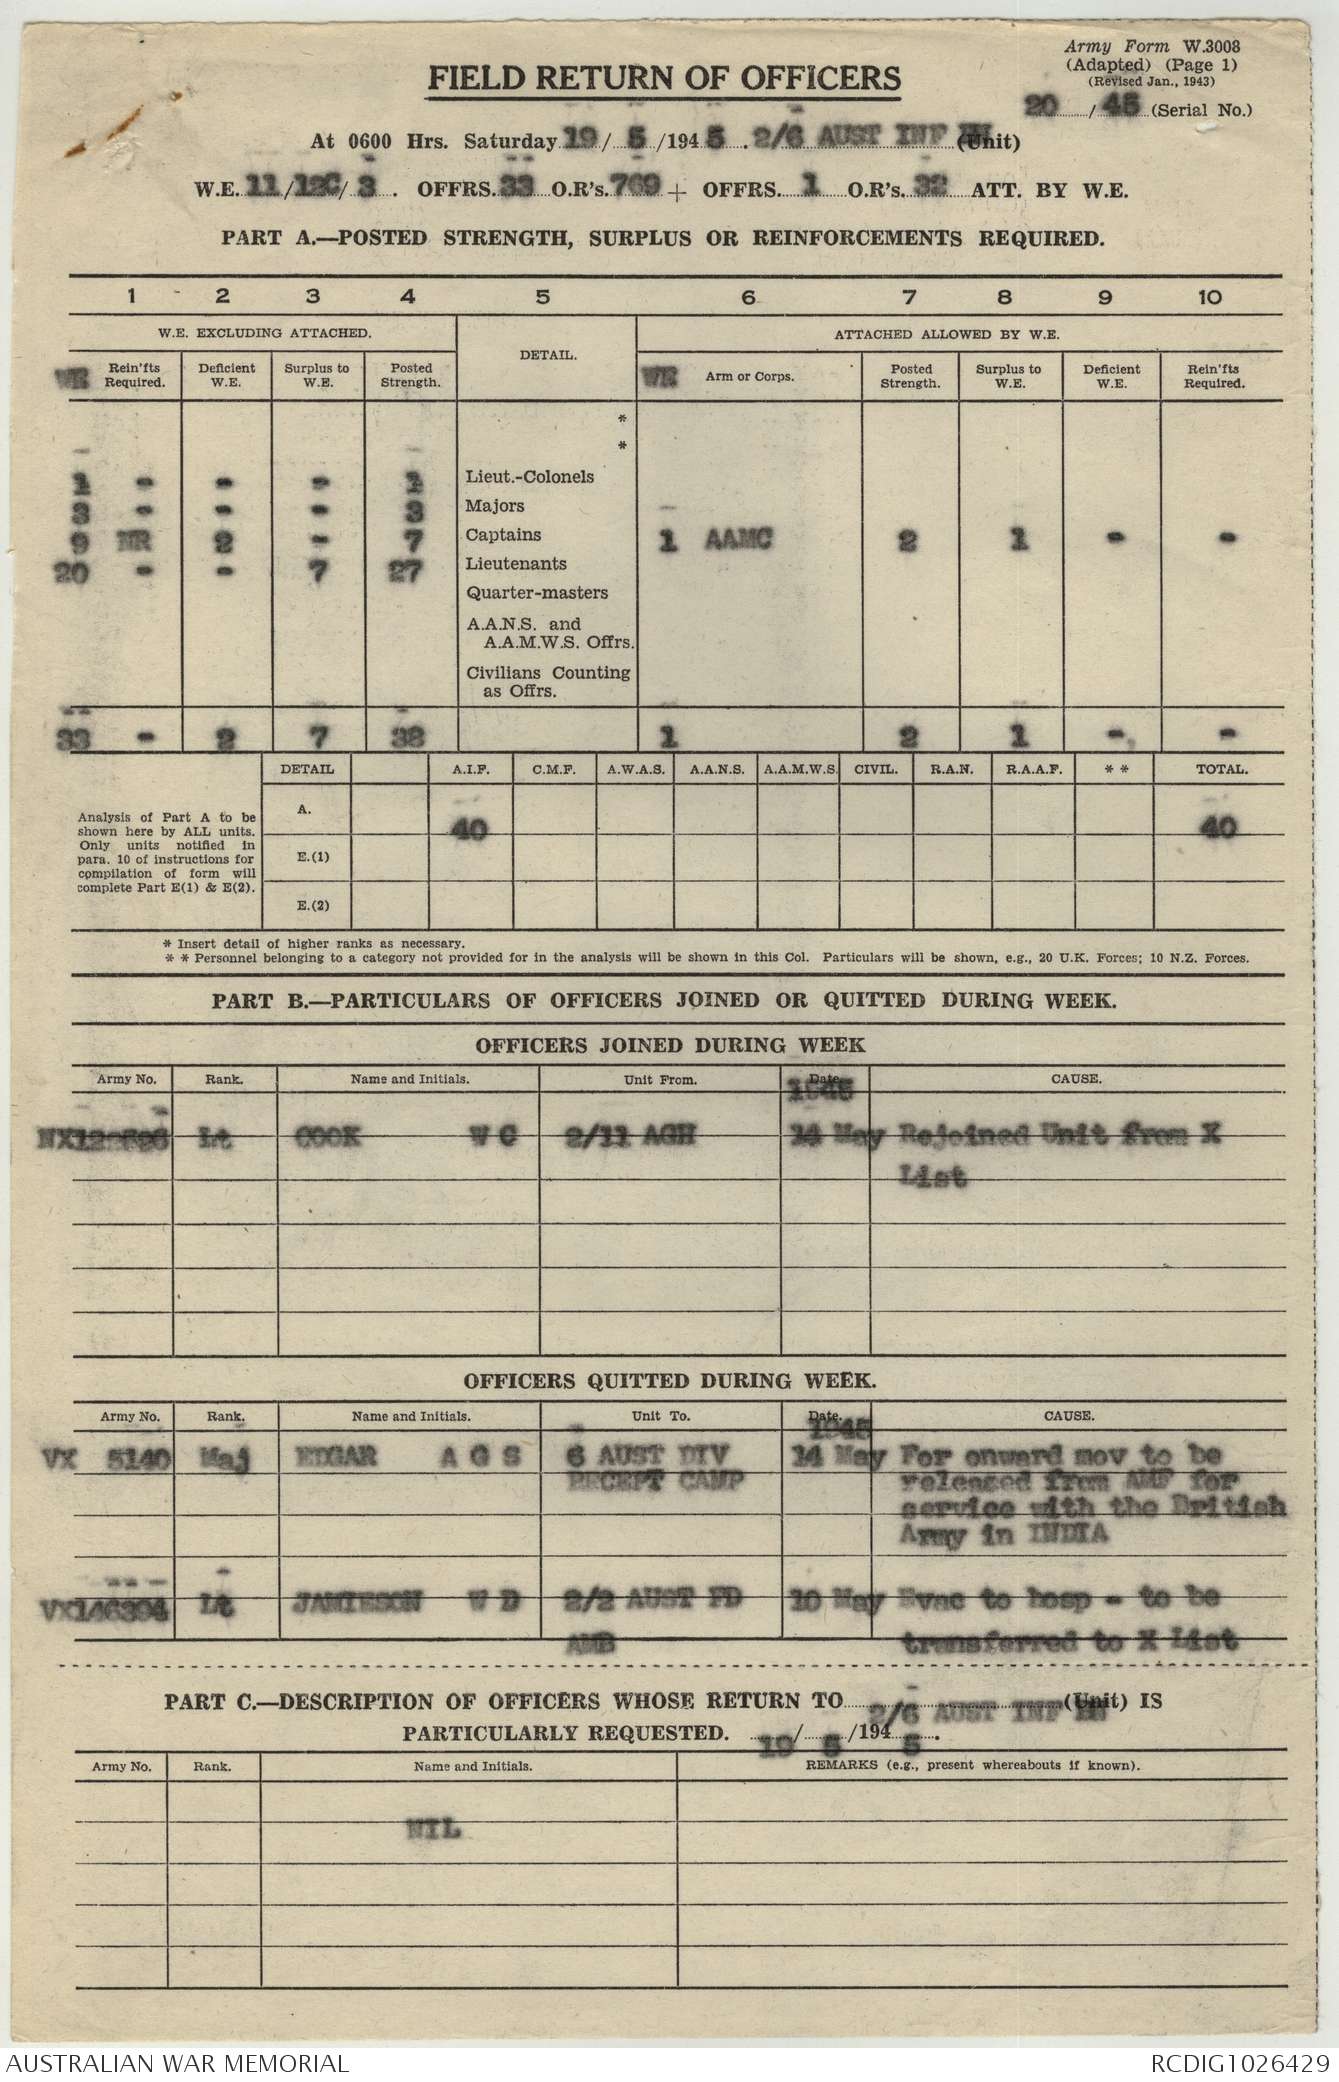 Army Form W.3008
(Adapted) (Page 1)
(Revised Jan., 1943)
FIELD RETURN OF OFFICERS
20 / 45 (Serial No.)
At 0600 Hrs. Saturday 19 / 5 /194 5 . 2/6 AUST INF BN (Unit)
W.E. 11 /12C/ 3 . OFFRS. 33 O.R's. 769 + OFFRS. 1 O.R's. 32 ATT. BY W.E.
PART A.—POSTED STRENGTH, SURPLUS OR REINFORCEMENTS REQUIRED.
1 2 3 4 5 6 7 8 9 10
W.E. EXCLUDING ATTACHED. DETAIL. ATTACHED ALLOWED BY W.E.
WE Rein'fts Required. Deficient W.E. Surplus to W.E. Posted Strength. WE Arm or Corps. Posted Strength. Surplus to W.E. Deficient W.E. Rein'fts Required.
*
*
1 - - - 1 Lieut.-Colonels
3 - - - 3 Majors
9 NR 2 - 7 Captains 1 AAMC 2 1 - -
20 - - 7 27 Lieutenants
Quarter-masters
A.A.N.S. and
A.A.M.W.S. Offrs.
Civilians Counting
as Offrs.
33 - 2 7 38 1 2 1 - -
DETAIL A.I.F. C.M.F. A.W.A.S. A.A.N.S. A.A.M.W.S. CIVIL. R.A.N. R.A.A.F. * * TOTAL.
Analysis of Part A to be
shown here by ALL units.
Only units notified in
para. 10 of instructions for
compilation of form will
complete Part E(1) & E(2).
A. 40 40
E.(1)
E.(2)
* Insert detail of higher ranks as necessary.
* * Personnel belonging to a category not provided for in the analysis will be shown in this Col. Particulars will be shown, e.g., 20 U.K. Forces; 10 N.Z. Forces.
PART B.—PARTICULARS OF OFFICERS JOINED OR QUITTED DURING WEEK.
OFFICERS JOINED DURING WEEK
Army No. Rank. Name and Initials. Unit From. Date. CAUSE.
1945
Lt COOK W C 2/11 AGH 14 May Rejoined Unit from X
List
OFFICERS QUITTED DURING WEEK.
Army No. Rank. Name and Initials. Unit To. Date. CAUSE.
1945
VX 5140 Maj EDGAR A G S 6 AUST DIV 14 May For onward mov to be
RECEPT CAMP released from AMF for
service with the British
Army in INDIA
VX146394 Lt JAMIESON W D 2/2 AUST FD 10 May Evac to hosp - to be
AMB transferred to X List
PART C.—DESCRIPTION OF OFFICERS WHOSE RETURN TO 2/6 AUST INF BN (Unit) IS
PARTICULARLY REQUESTED. 19 / 5 /194 5 .
Army No. Rank. Name and Initials. REMARKS (e.g., present whereabouts if known).
NIL
AUSTRALIAN WAR MEMORIAL
RCDIG1026429